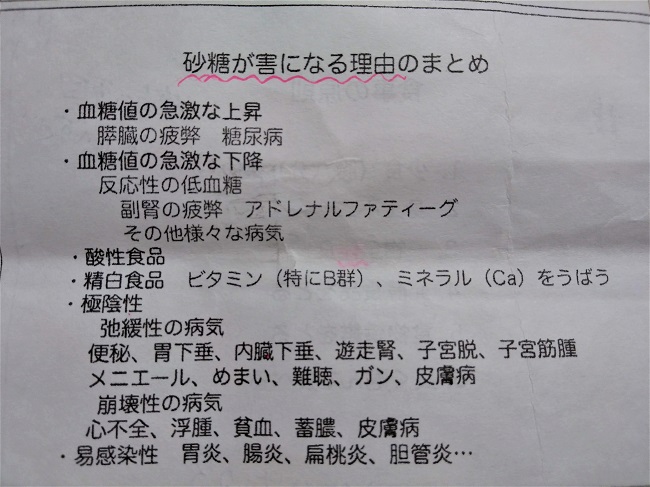 砂糖が害になる理由のまとめ
・血糖値の急激な上昇
膵臓の疲弊　糖尿病
・血糖値の急激な下降
反応性の低血糖
副腎の疲弊　アドレナルファティーグ
その他様々な病気
・酸性食品
・精白食品　ビタミン（特にB群）、ミネラル（Ca）をうばう
・極陰性
弛緩性の病気
便秘、胃下垂、内臓下垂、遊走腎、子宮脱、子宮筋腫
メニエール、めまい、難聴、ガン、皮膚病
崩壊性の病気
心不全、浮腫、貧血、蓄膿、皮膚病
・易感染性　胃炎、腸炎、扁桃炎、胆管炎…